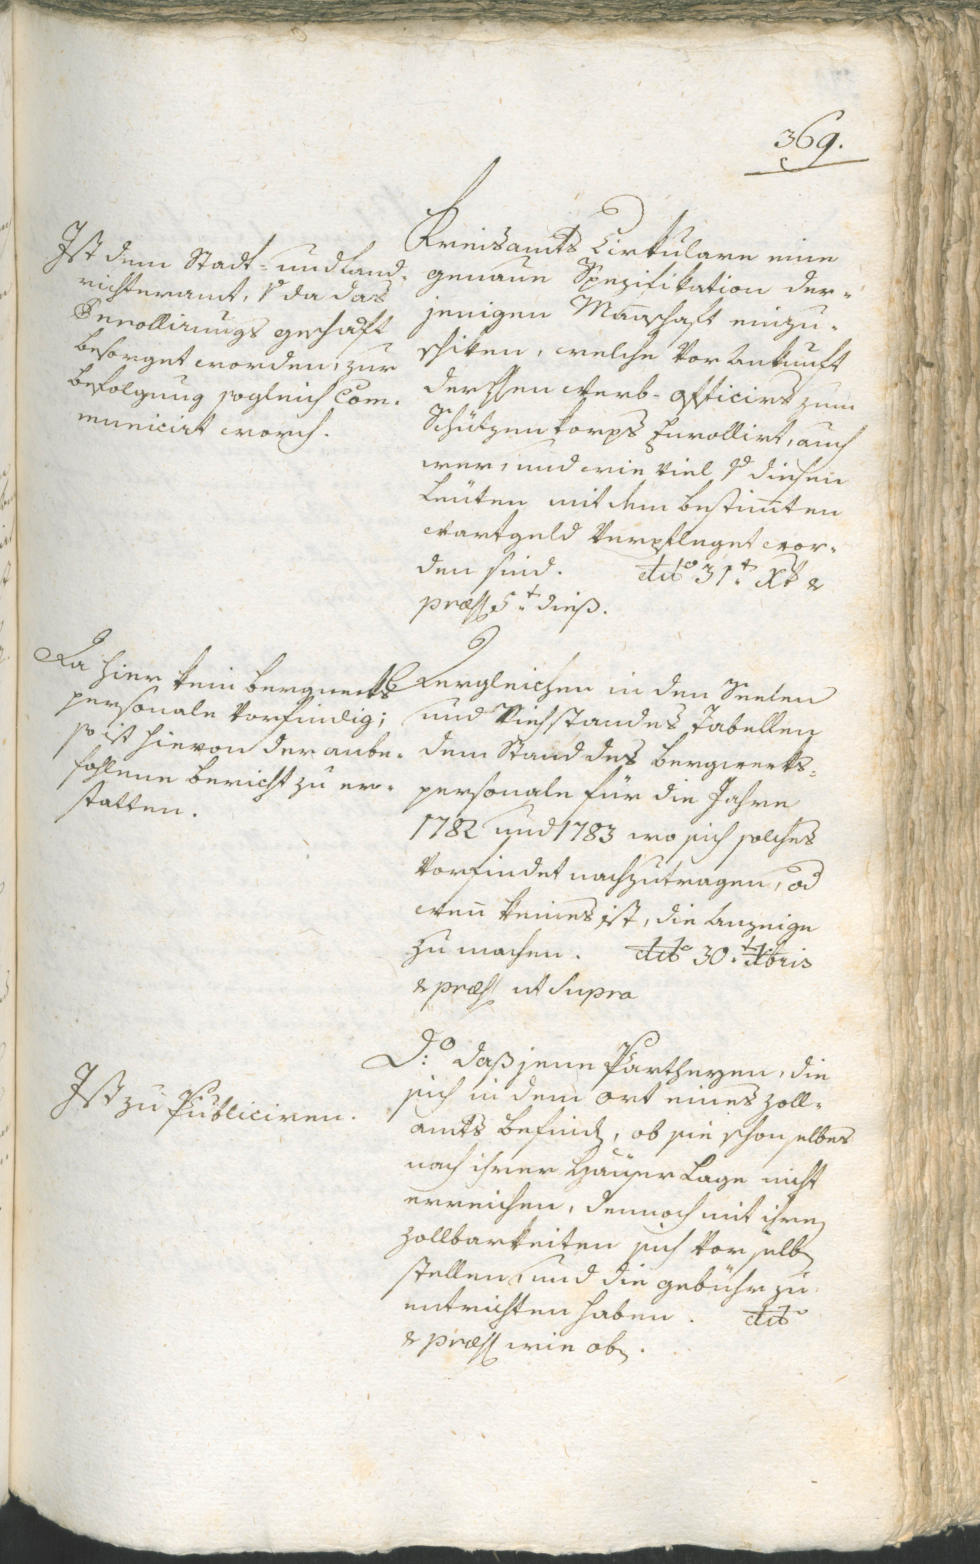 369.
Ist dem Stadt- und Land-
richteramt, da das
Enrollirungs geschäft
besorget worden, zur
befolgung sogleich Com-
municirt word.
Kreisamts Cirkulare eine
genaue Spezifikation der-
jenigen Mañschaft einzu-
schiken, welche vor Ankunft
der werb-officirs zum
Schützen korps Enrollirt, auch
wer, und wie viel diesen
Leüten mit dem bestim̄ten
wartgeld verpfleget wor-
den sind. dtō 31t Xb &
præs 5t dieß.
Da hier kein bergwerks
personale vorfindig;
so ist hievon der anbe-
fohlene bericht zu er-
statten.
Dergleichen in den Seelen
und Viehstandes Tabellen
dem Stand des bergwerks-
personale für die Jahre
1782 und 1783 wo sich solches
vorfindet nachzutragen, od
weñ keines ist, die Anzeige
zu machen. dtō 30t Xbris
& præs ut Supra
Ist zu Publiciren.
D:o daß jene Partheyen, die
sich in dem Ort eines zoll-
amts befind, ob sie schon selbes
nach ihrer Häuser Lage nicht
erreichen, dennoch mit ihren
zollbarkeiten sich vor selb
stellen, und die gebühr zu
entrichten haben. dtō
& præs wie ob.